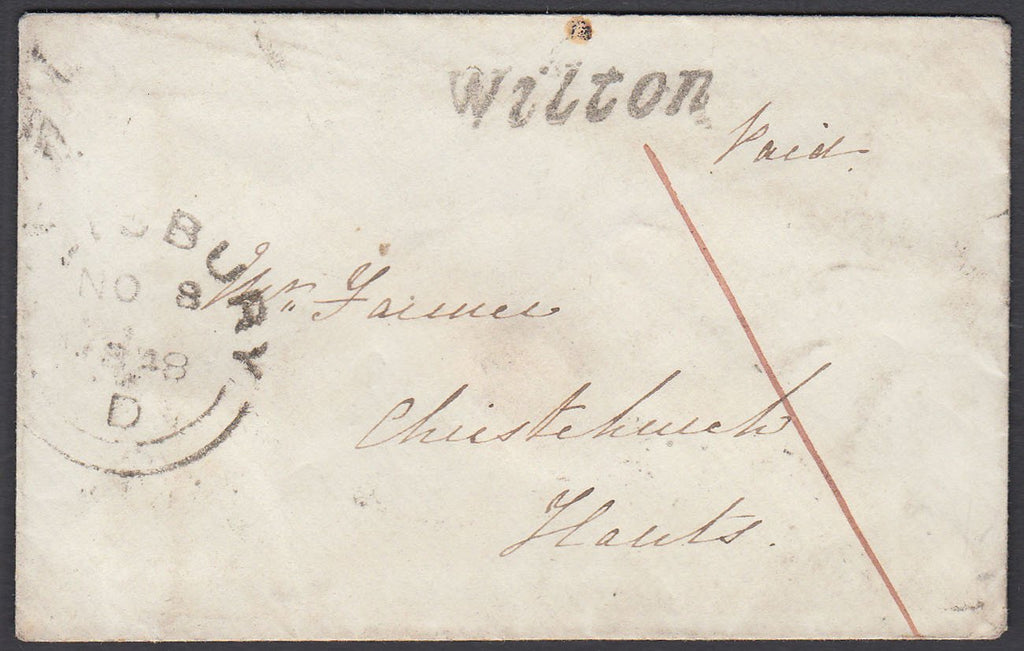 Wilton
Paid
SBURY
NO 8
1848
D
Mr Farmer
Christchurch
Hants.